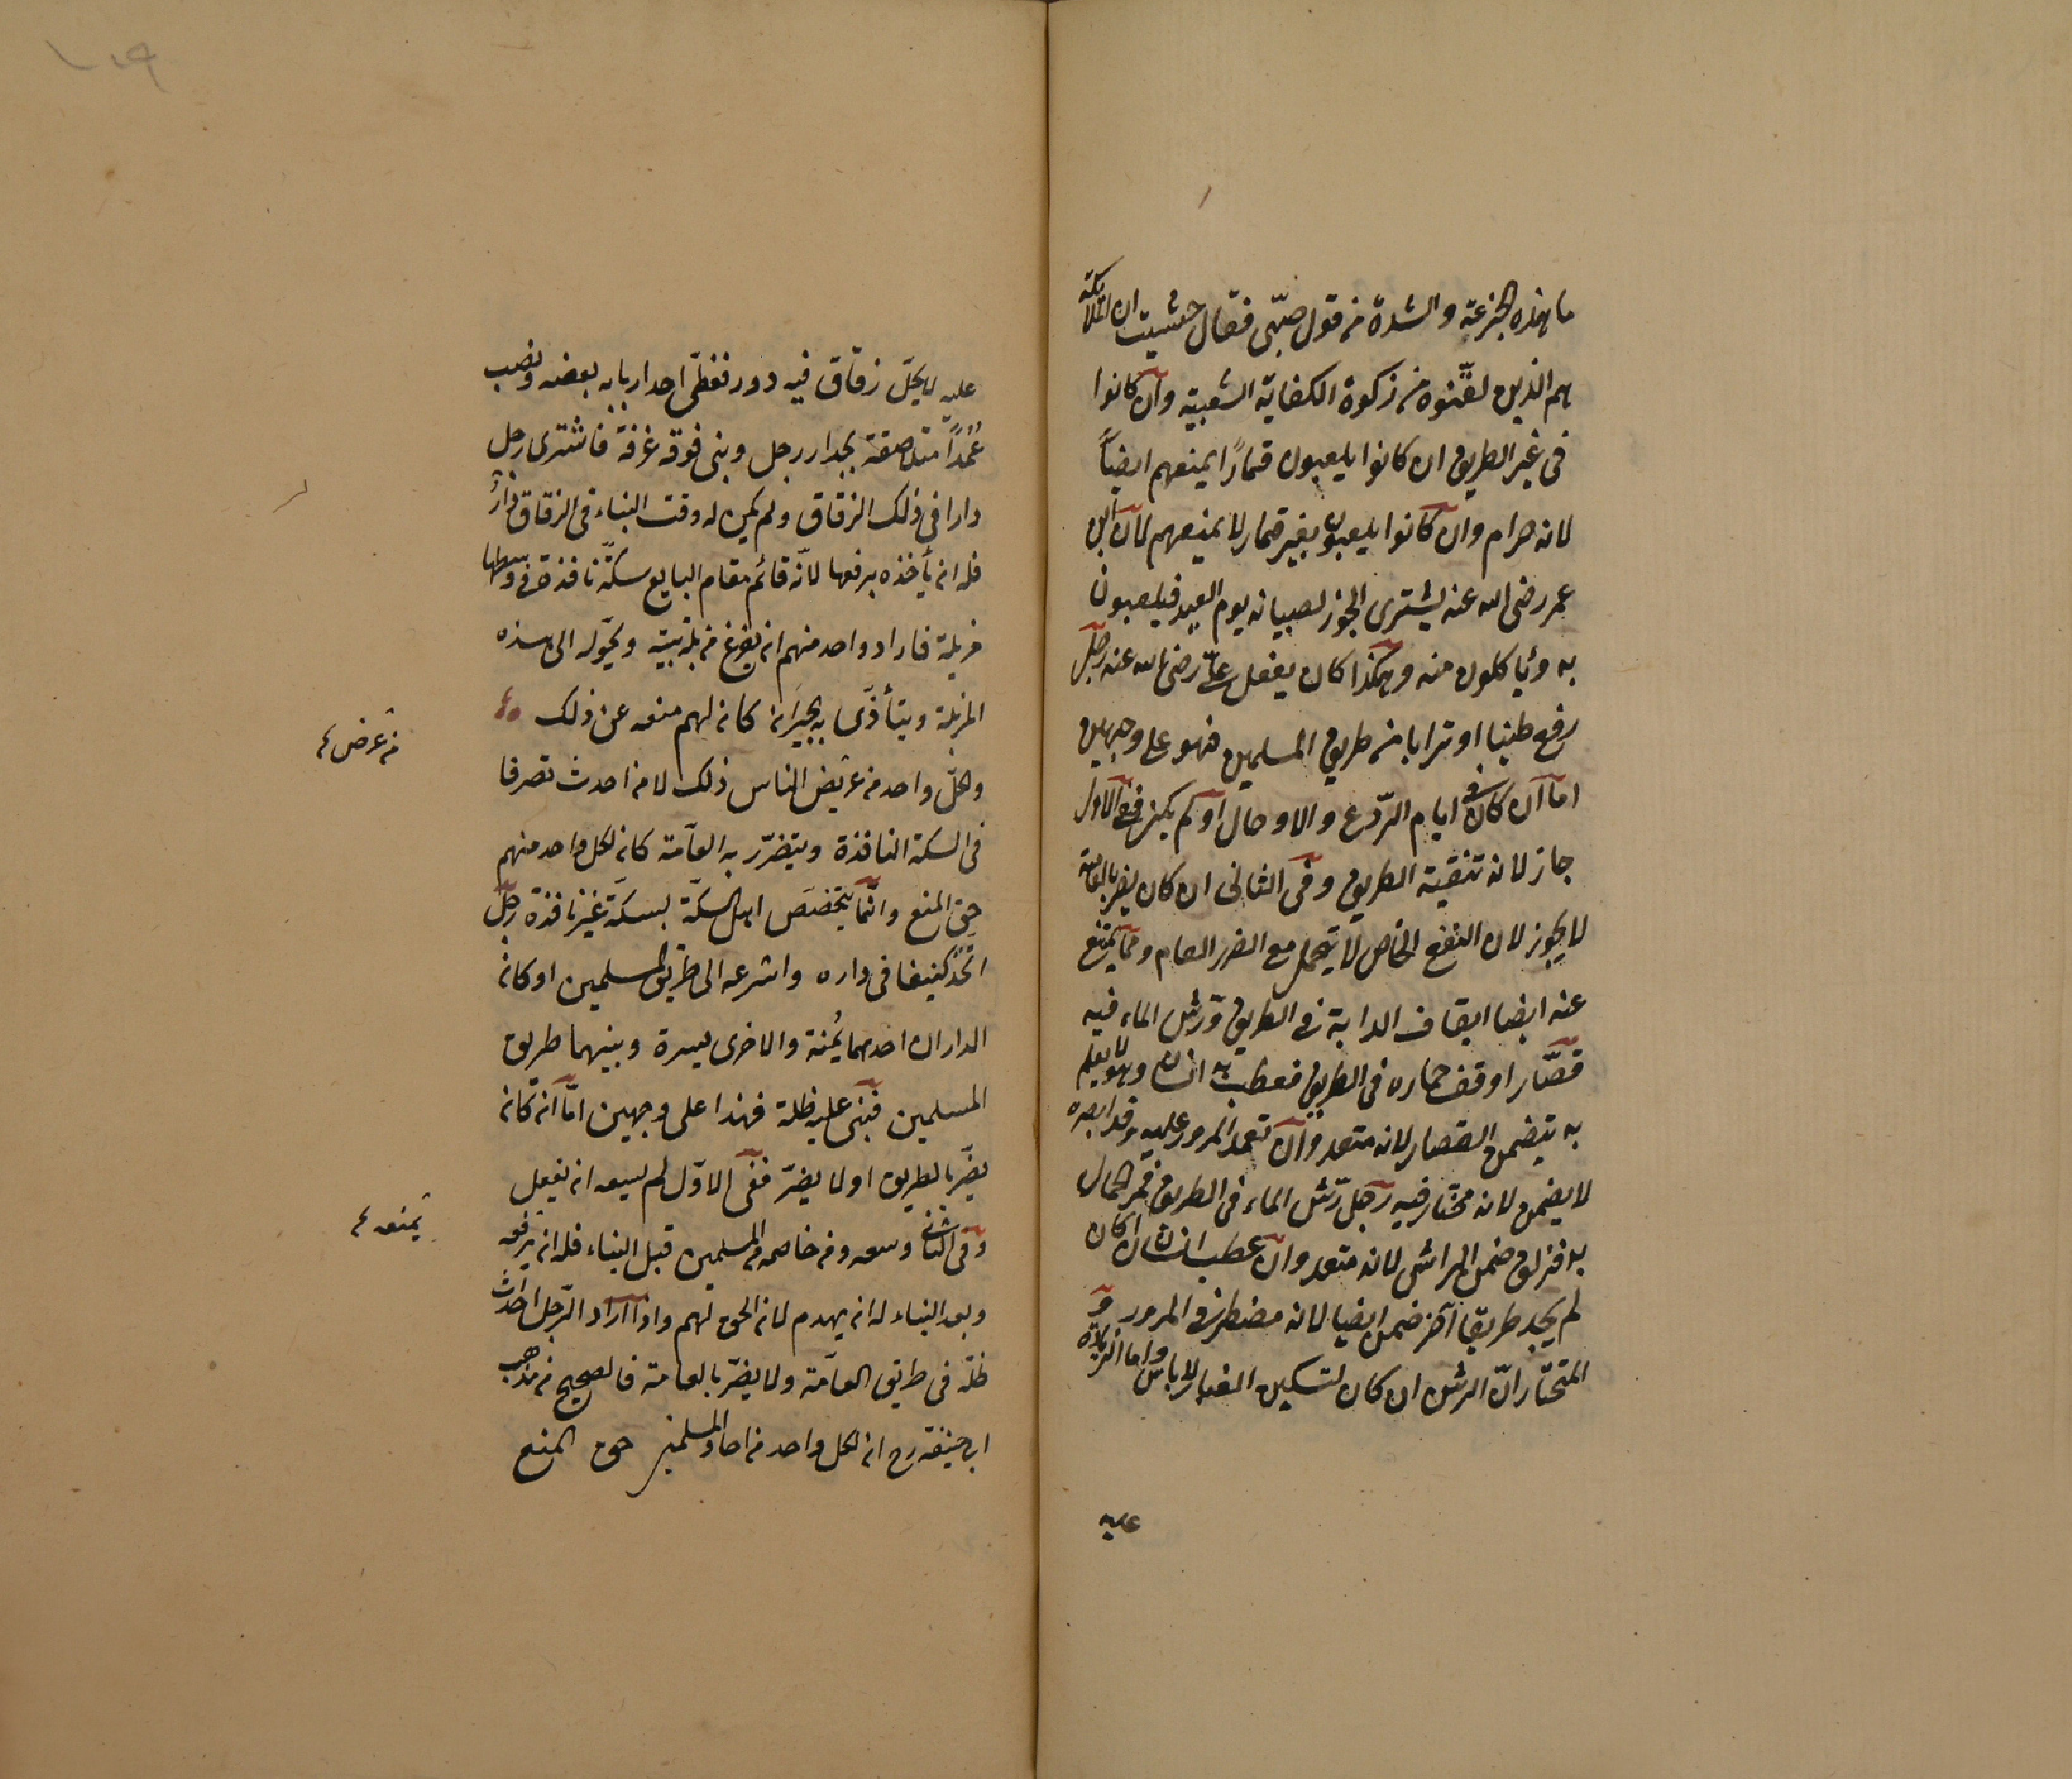 ما هذه الجزعة والشدة من قول صبي فقال خشيت ان الملائكة
هم الذين لقنوه من زكوة الكفاية الشعبية وان كانوا
فى غير الطريق ان كانوا يلعبون قمارًا يمنعهم ايضاً
لانه حرام وان كانوا يلعبون بغير قمار لا يمنعهم لان ابن
عمر رضى الله عنه يشترى الجوز لصبيانه يوم العيد فيلعبون
به ويأكلون منه وهكذا كان يفعل علىّ رضى الله عنه رجل
رفع طينا او ترابا من طريق المسلمين فهو على وجهين
اما ان كان فى ايام الردغ والاوحال او لم يكن ففى الاول
جاز لانه تنقية الطريق وفى الثانى ان كان يضر بالعامة
لا يجوز لان النفع الخاص لا يتحمل مع الضرر العام ومما يمنع
عنه ايضا ايقاف الدابة فى الطريق ورش الماء فيه
قصّار اوقف حماره فى الطريق فعطب به انسان وهو لا يعلم
به يتضمن القصار لانه متعد وان تعمد المرور عليه وقد ابصره
لا يضمن لانه مختار فيه رجل رش الماء فى الطريق فمر الحمال
به فزلق ضمن الراش لانه متعد وان عطب انسان ان كان
لم يجد طريقا آخر ضمن ايضا لانه مضطر فى المرور و
المختار انّ الرش ان كان لتسكين الغبار لا بأس واما الزيادة
عليه
عليه لا يحل زقاق فيه دور فغطى احد اربابه بعضه ونصب
عُمُداً متلاصقة بجدار رجل وبنى فوقه غرفة فاشترى رجل
دارا فى ذلك الزقاق ولم يكن له وقت البناء فى الزقاق دارٌ
فله ان يأخذه برفعها لانّه قائم مقام البايع سكّة نافذة فى وسطها
مزبلة فاراد واحد منهم ان يفرغ مزبلة بيته ويحوّله الى هذه
المزبلة ويتأذى به الجيران كان لهم منعه عن ذلك
ولكلّ واحد من عرض الناس ذلك لان من احدث تصرفا
فى السكة النافذة ويتضرّر به العامة كان لكل واحد منهم
حق المنع وانّما يتخصّص اهل السكّة بسكّة غير نافذة رجل
اتخذ كنيفا فى داره واشرعه الى طريق المسلمين او كان
الداران احدهما يُمنة والاخرى يسرة وبينهما طريق
المسلمين فبنى عليه ظلة فهذا على وجهين امّا ان كان
يضرّ بالطريق او لا يضرّ ففى الاوّل لم يسعه ان يفعل
وفى الثانى وسعه ومن خاصمه من المسلمين قبل البناء فله ان يرفعه
وبعد البناء له ان يهدم لان الحق لهم واذا اراد الرّجل احداث
ظلّة فى طريق العامّة ولا يضرّ بالعامة فالصحيح من مذهب
ابى حنيفة رح ان لكل واحد من احاد المسلمين حق المنع
من عرض
يمنعه